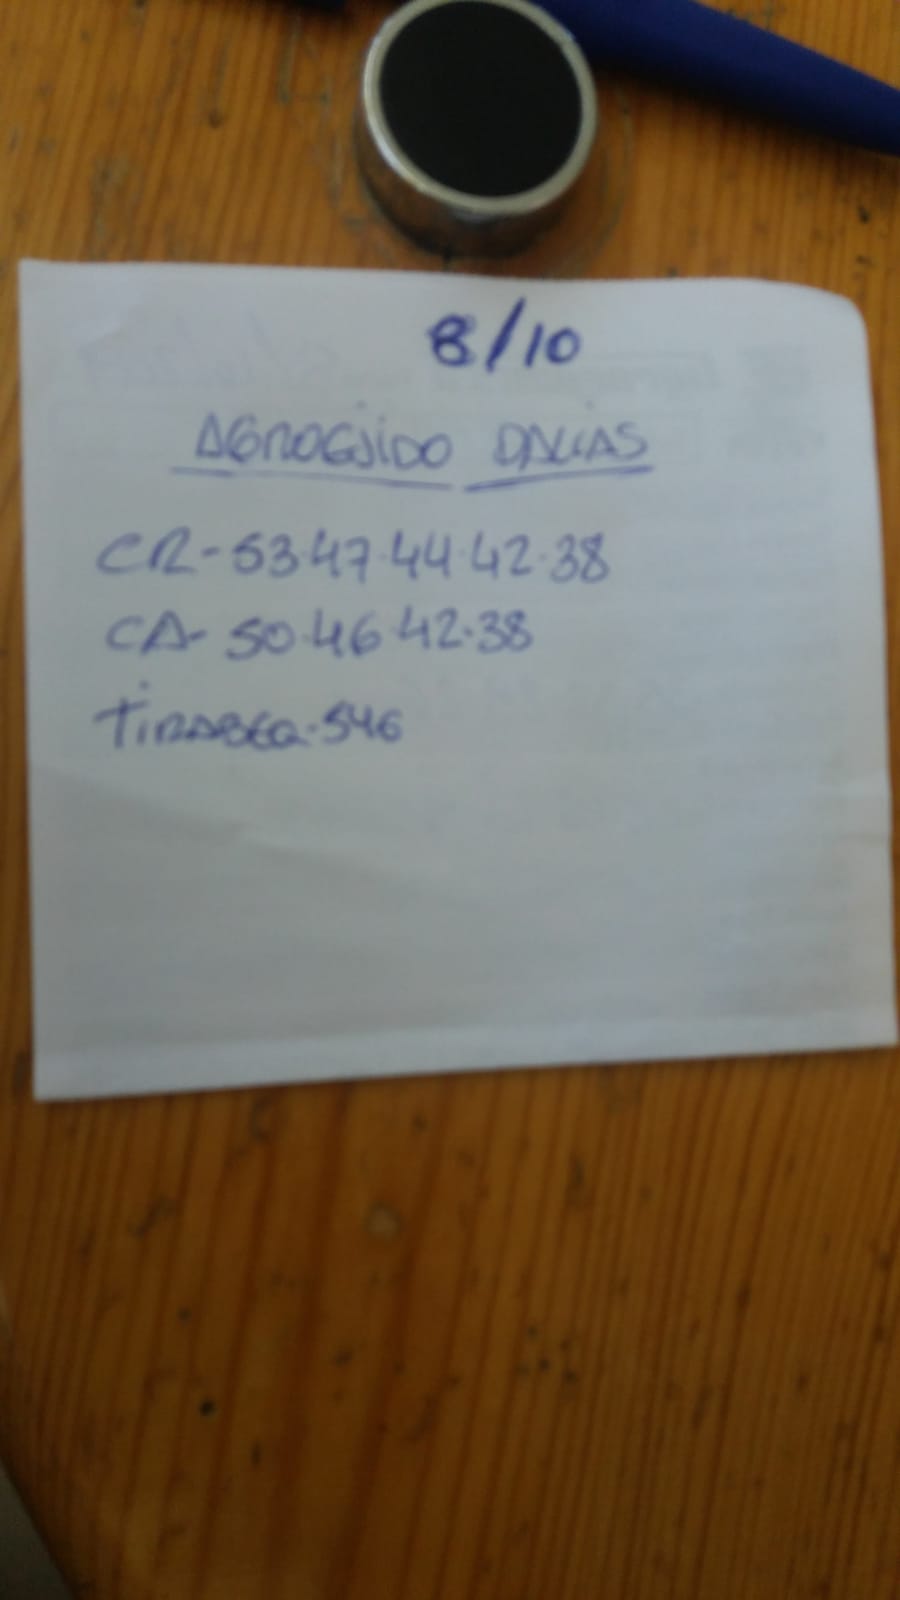 8/10
AGROEJIDO DALIAS
CR-53.47.44.42.38
CA-50.46.42.38
TIRABEQ.546